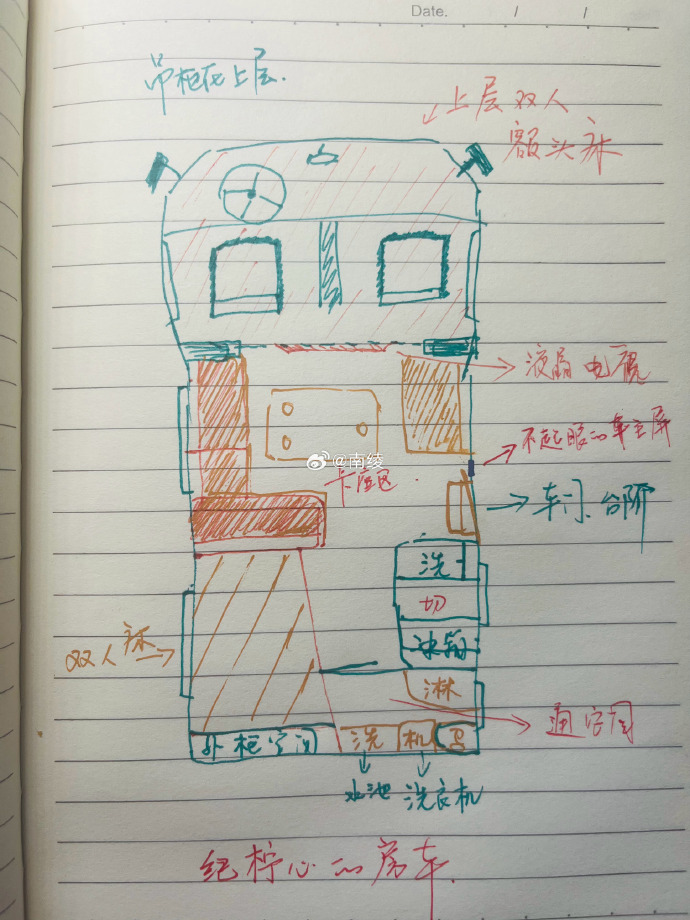 Date. / /
吊柜在上层.
上层双人
额头床
液晶电视
不起眼的车主屏
@南绫
卡座区.
车门.台阶
洗
切
冰箱
双人床
淋
通字间
外柜空间
洗
机
马
水池
洗衣机
纪柠心的房车.